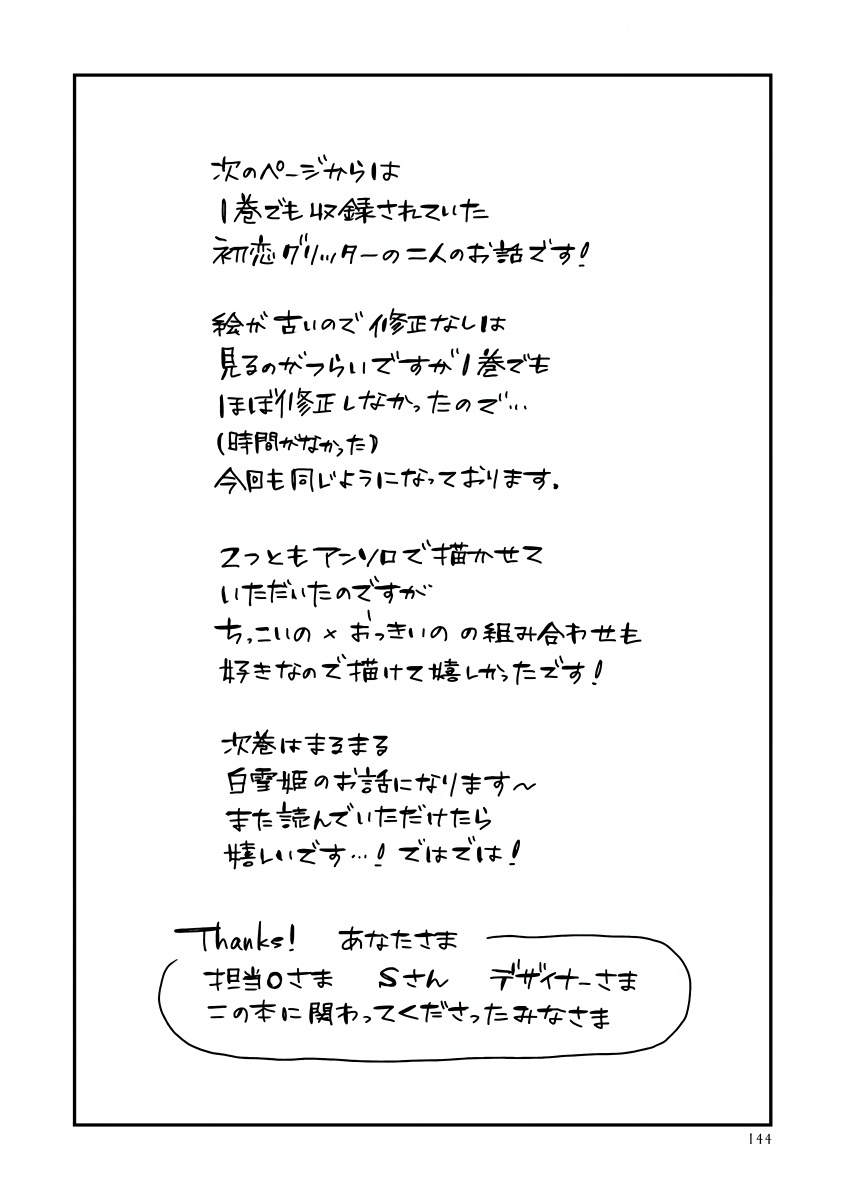 次のページからは
1巻でも収録されていた
初恋グリッターの二人のお話です!
絵が古いので修正なしは
見るのがつらいですが1巻でも
ほぼ修正しなかったので…
(時間がなかった)
今回も同じようになっております。
2つともアンソロで描かせて
いただいたのですが
ちっこいの×おっきいのの組み合わせも
好きなので描けて嬉しかったです!
次巻はまるまる
白雪姫のお話になります~
また読んでいただけたら
嬉しいです…!ではでは!
Thanks! あなたさま
担当Oさま Sさん デザイナーさま
この本に関わってくださったみなさま
144